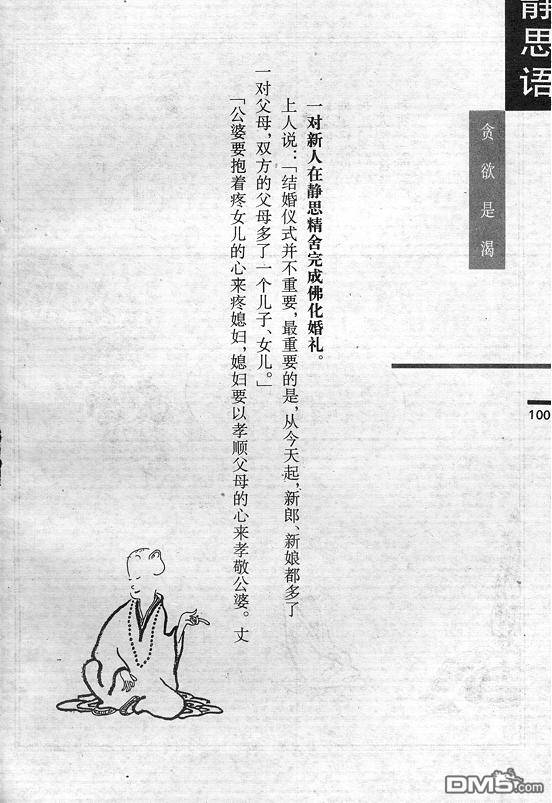 静思语
贪欲是渴
100
一对新人在静思精舍完成佛化婚礼。
上人说：「结婚仪式并不重要，最重要的是，从今天起，新郎、新娘都多了
一对父母，双方的父母多了一个儿子、女儿。」
「公婆要抱着疼女儿的心来疼媳妇，媳妇要以孝顺父母的心来孝敬公婆。丈
DM5.com